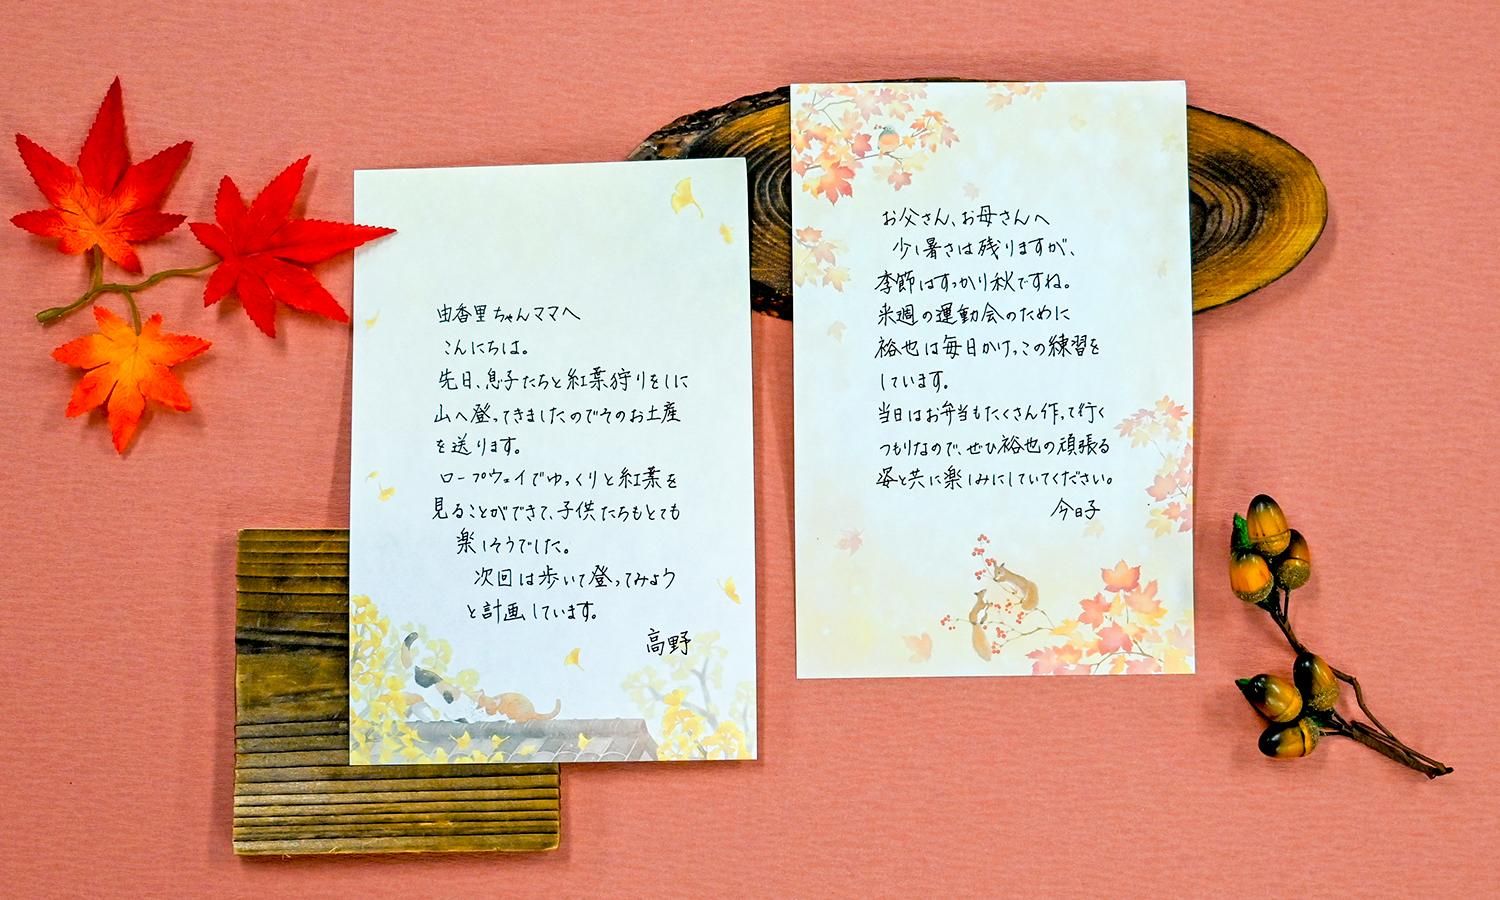 由香里ちゃんママへ
こんにちは。
先日、息子たちと紅葉狩りをしに
山へ登ってきましたのでそのお土産
を送ります。
ロープウェイでゆっくりと紅葉を
見ることができて、子供たちもとても
楽しそうでした。
次回は歩いて登ってみよう
と計画しています。
高野
お父さん、お母さんへ
少し暑さは残りますが、
季節はすっかり秋ですね。
来週の運動会のために
裕也は毎日かけっこの練習を
しています。
当日はお弁当もたくさん作って行く
つもりなので、ぜひ裕也の頑張る
姿と共に楽しみにしていてください。
今日子